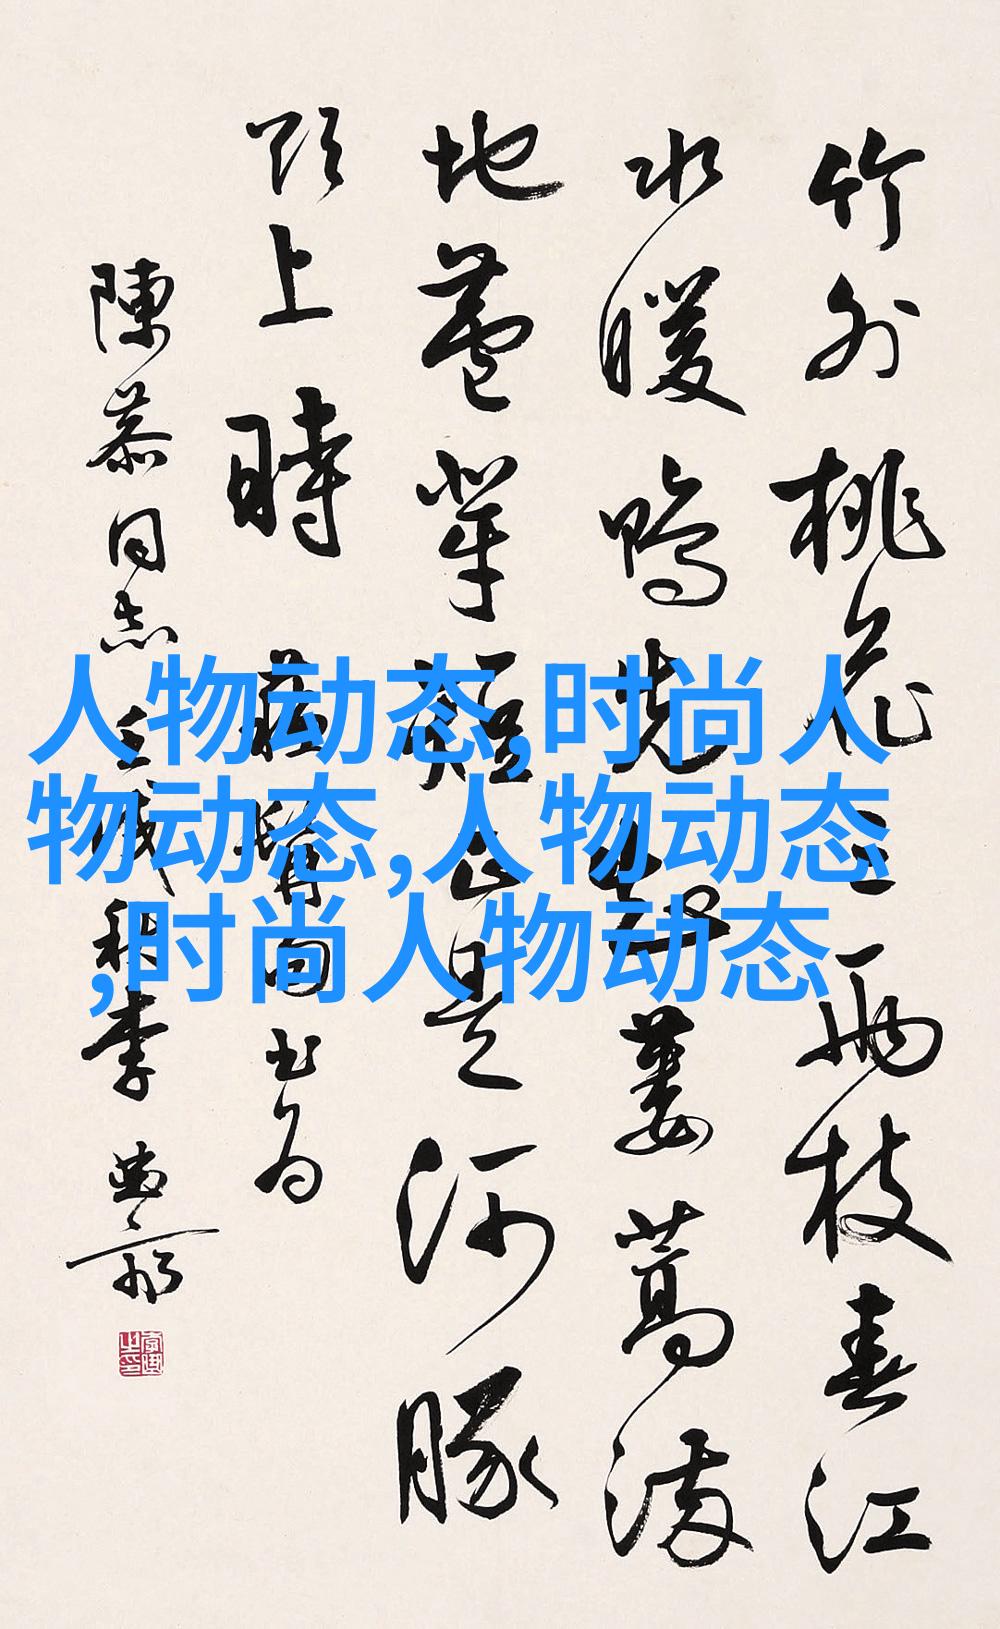 竹外桃花三两枝春江
水暖鸭先知蒌蒿满
地芦芽短正是河豚
欲上时 苏髯句书为
陳慕同志 壬戌秋李
人物动态,时尚人
物动态,人物动态
,时尚人物动态